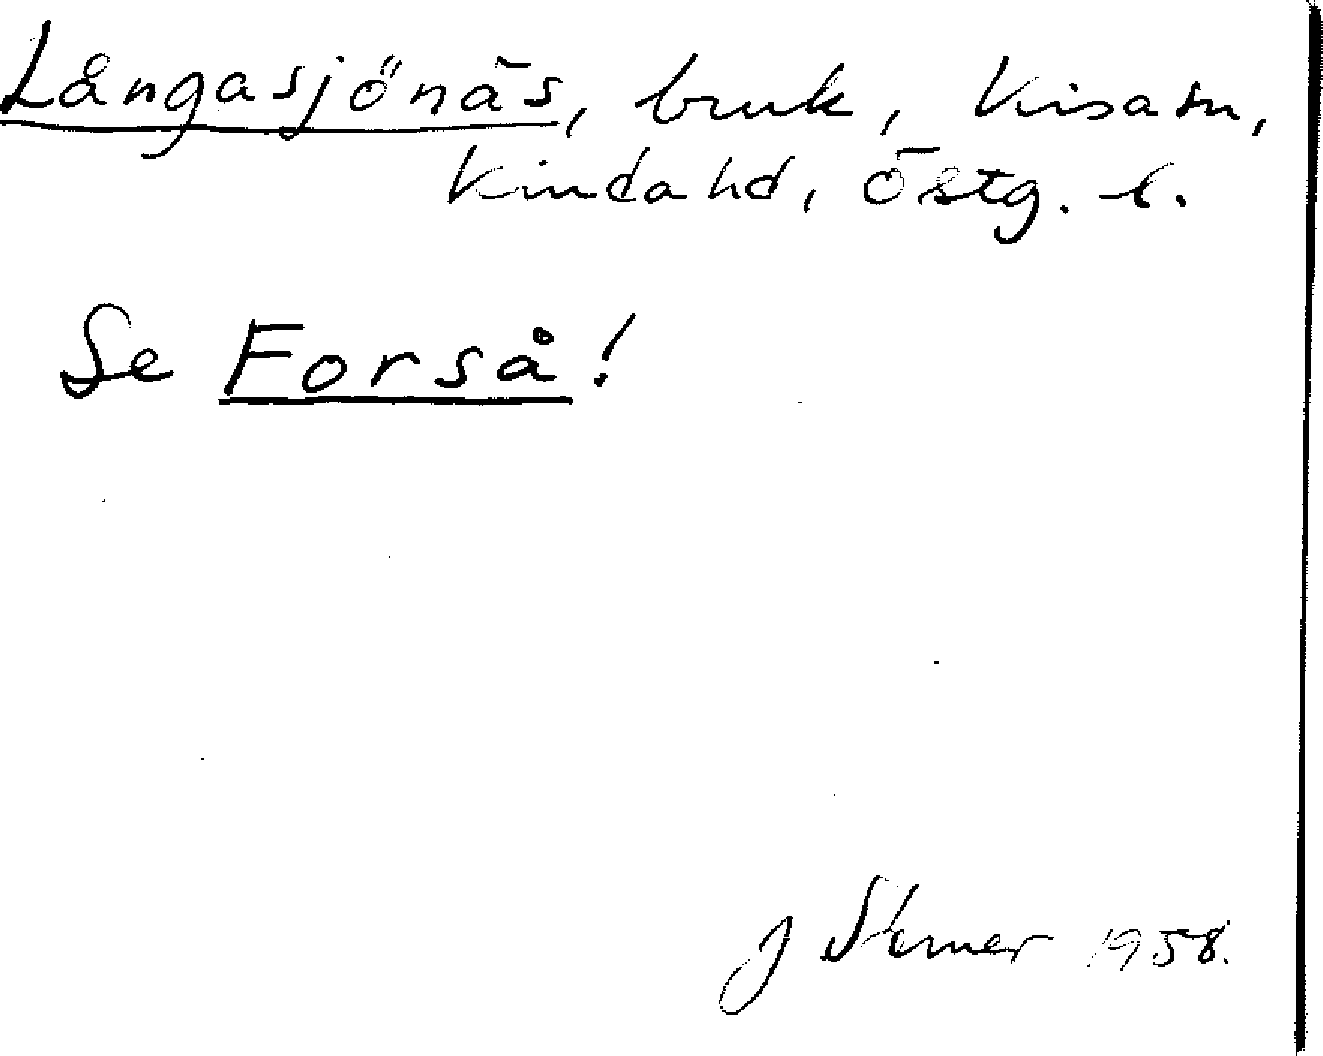 Långasjönäs, bruk, Kisa sn,
Kinda hd, Östg. l.
Se Forså!
J 1958.